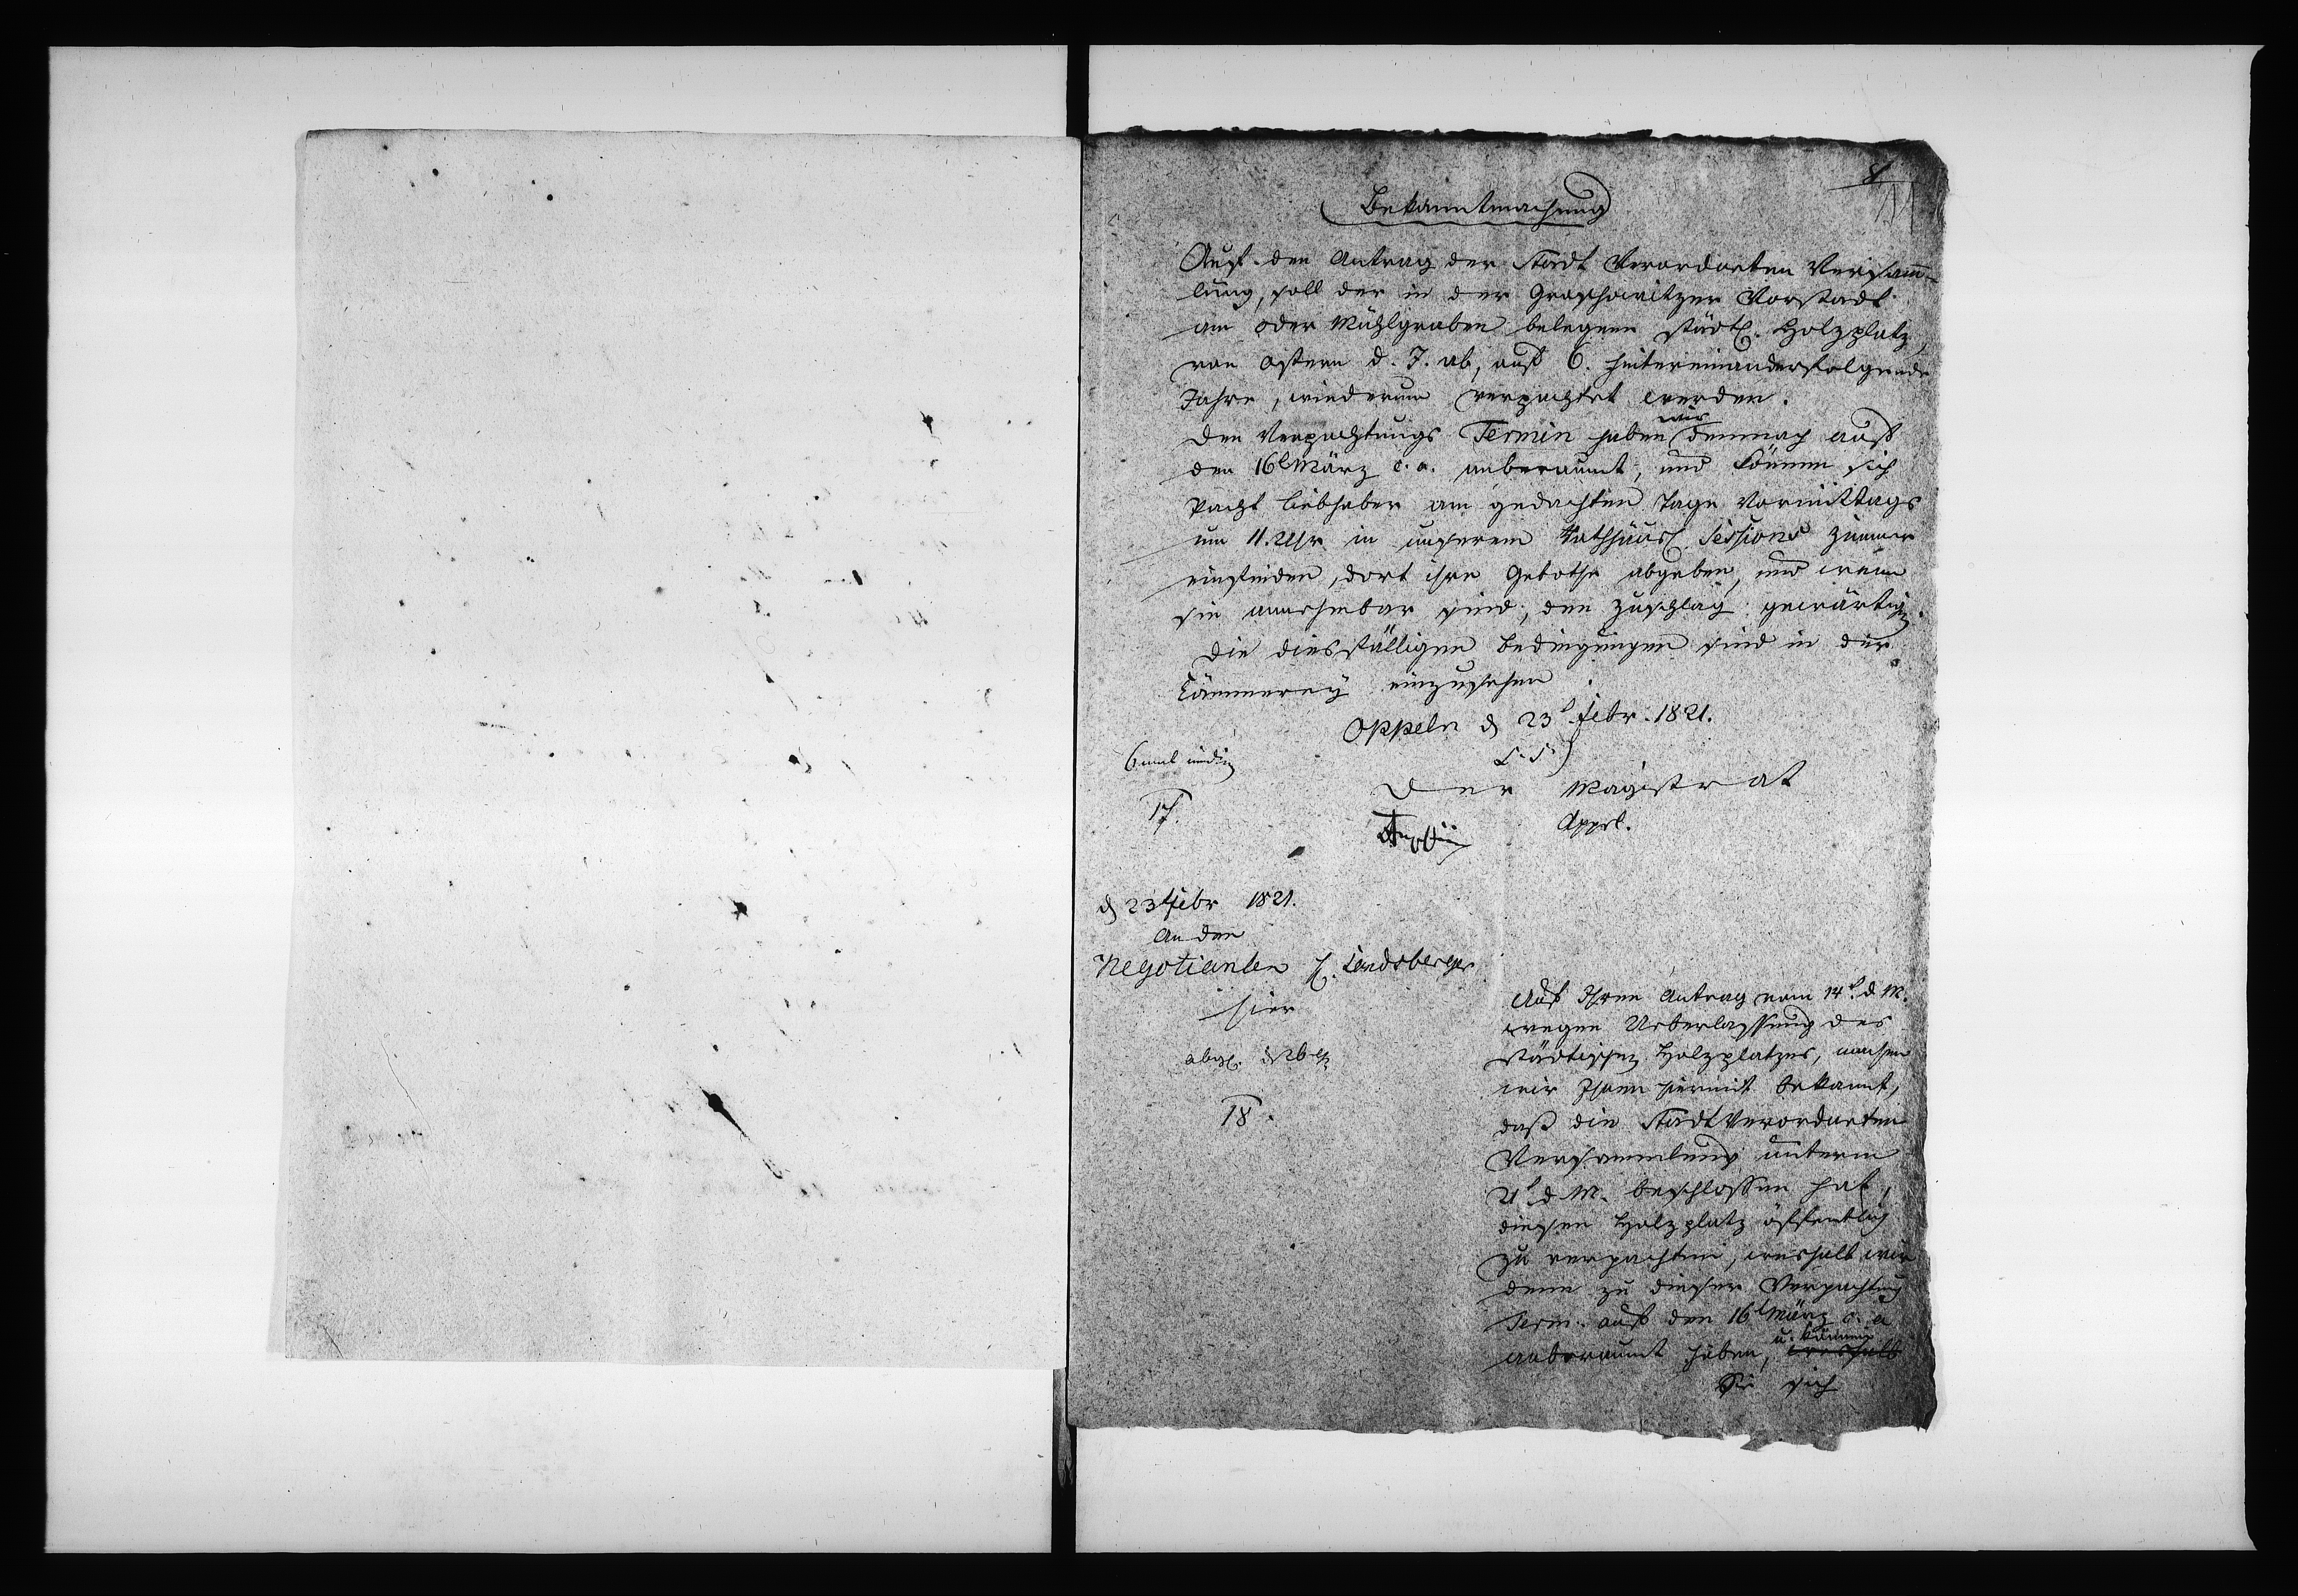 8
Bekanntmachung
Auf den Antrag der Stadt Verordneten Versamm-
lung, soll der in der Groschowitzer Vorstadt
am Oder Mühlgraben belegene städt. Holzplatz,
von Ostern d. J. ab, auf 6. hintereinanderfolgende
Jahre, wiederum verpachtet werden.
Den Verpachtungs Termin haben wir demnach auf
den 16t März c. a. anberaumt, und können sich
Pacht Liebhaber am gedachten Tage Vormittags
um 11. Uhr in unserem Rathhäusl. Sessions Zimmer
einfinden, dort ihre Gebothe abgeben, und wenn
sie annehmbar sind, den Zuschlag gewärtig.
Die diesfälligen Bedingungen sind in der
Cämmerey einzusehen
Oppeln d 23t Febr. 1821.
L. S.
6 mal
Der Magistrat
17.
d 23t Febr 1821.
An den
Negotianten H. Landsberger
hier
18.
Auf Ihren Antrag vom 14t d. M.
wegen Ueberlassung des
städtischen Holzplatzes, machen
wir Ihnen hiermit bekannt,
daß die Stadt Verordneten
Versammlung unterm
21t d. M. beschlossen hat,
diesen Holzplatz öffentlich
zu verpachten, weshalb wir
denn zu dieser Verpachtung
Term. auf den 16t März c. a
anberaumt haben, u. können
Sie sich